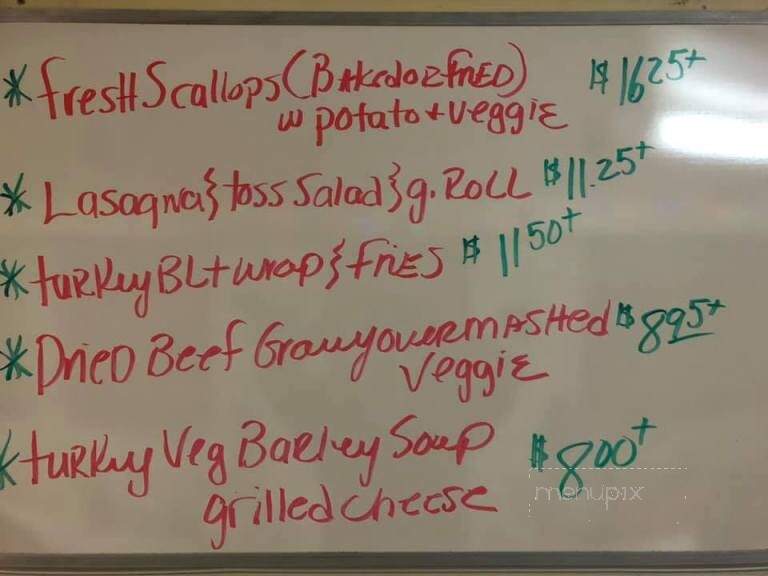 * fresh Scallops (Baked or fried) $ 16 25+
w potato + veggie
* Lasagna } toss Salad } g. Roll $ 11.25+
* turkey BLt wrap } fries $ 11 50+
* Dried Beef Gravy over mashed $ 8 95+
veggie
* turkey Veg Barley Soup $ 8 00+
grilled cheese
menupix